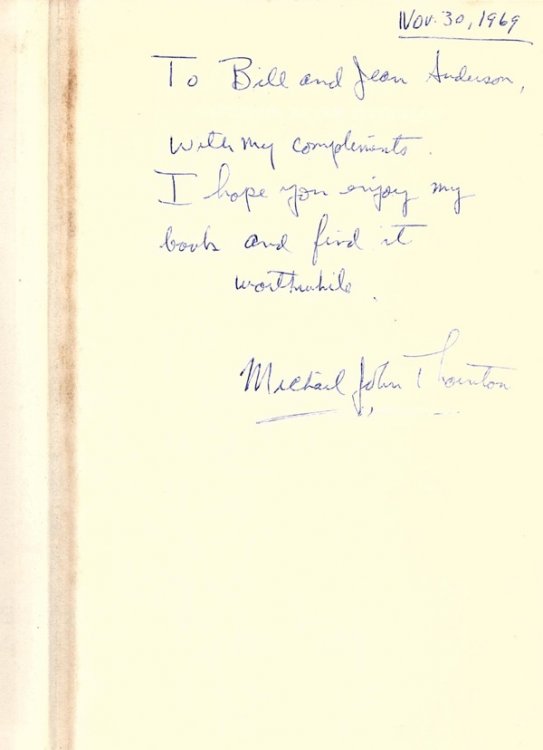 Nov. 30, 1969
To Bill and Jean Anderson,
With my compliments.
I hope you enjoy my
book and find it
worthwhile.
Michael John Thornton